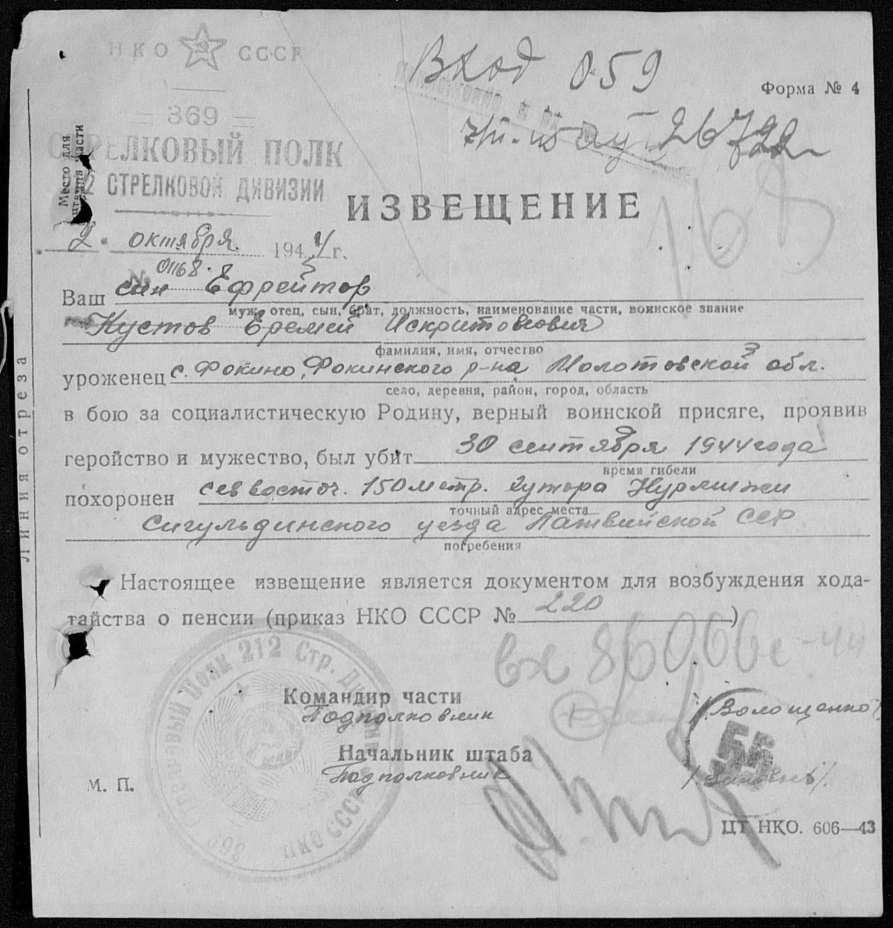 НКО СССР
Вход 059
Форма № 4
369
СТРЕЛКОВЫЙ ПОЛК
СТРЕЛКОВОЙ ДИВИЗИИ
Место для
части
ИЗВЕЩЕНИЕ
2 октября 1944 г.
№ 01168
Ваш сын Ефрейтор
муж, отец, сын, брат, должность, наименование части, воинское звание
Кустов Еремей
фамилия, имя, отчество
уроженец с. Фокино, Фокинского р-на Молотовской обл.
село, деревня, район, город, область
в бою за социалистическую Родину, верный воинской присяге, проявив
геройство и мужество, был убит 30 сентября 1944 года
время гибели
похоронен сев восточ. 150 метр. хутора Нурмижи
точный адрес места
Сигульдинского уезда Латвийской ССР
погребения
Линия отреза
Настоящее извещение является документом для возбуждения хода-
тайства о пенсии (приказ НКО СССР № 220)
вх 86066с-44
Командир части
Подполковник
/Волощенко/
Начальник штаба
Подполковник
56
М. П.
369 Стрелковый Полк 212 Стр. Дивизии НКО СССР
ЦТ НКО. 606—43